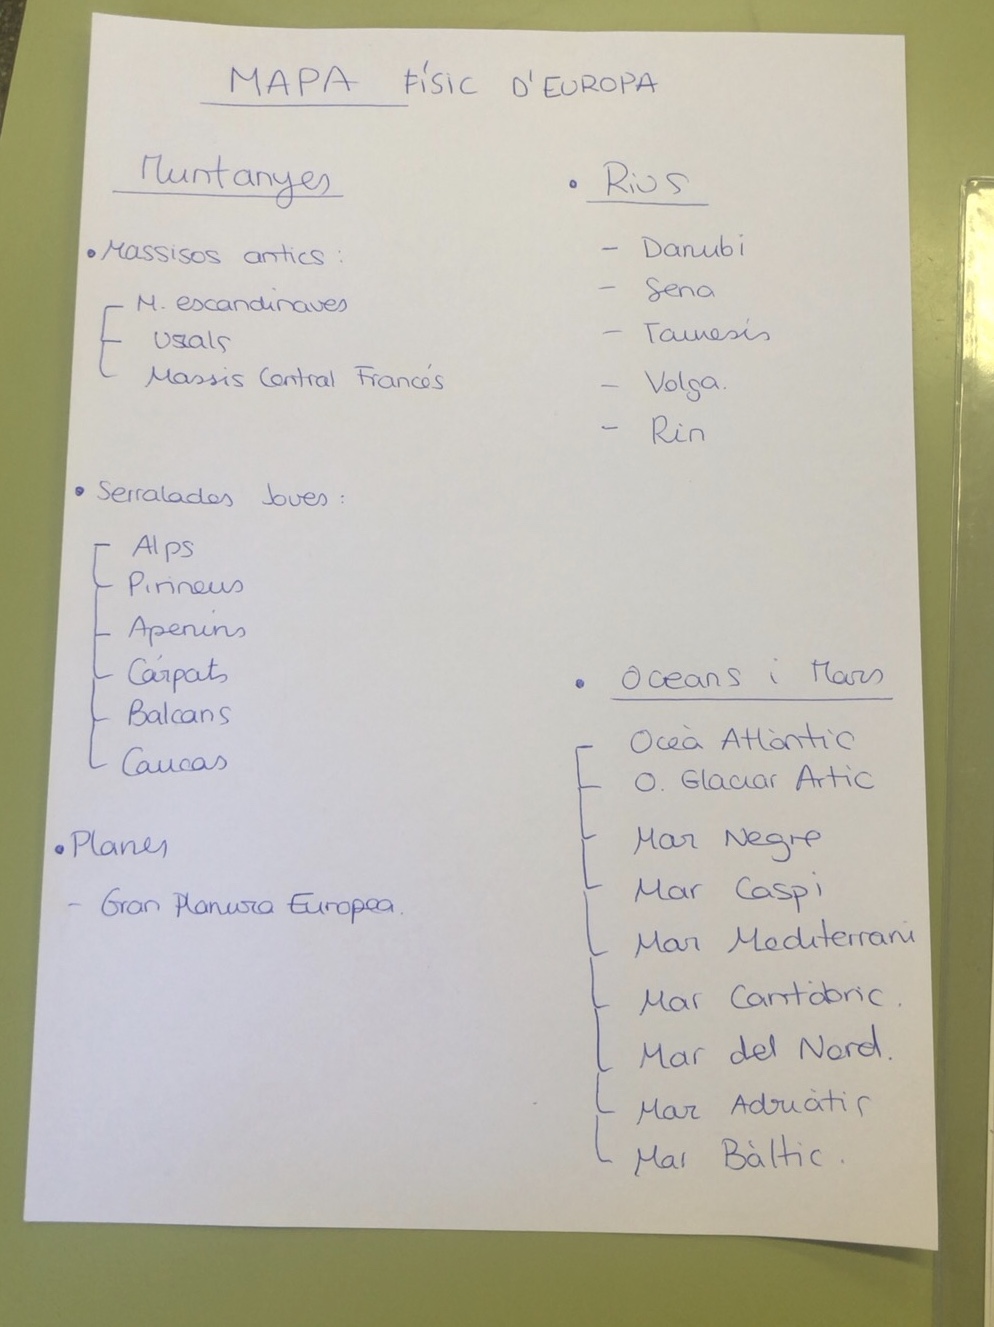 MAPA FÍSIC D'EUROPA
Muntanyes
• Massisos antics :
M. escandinaves
Urals
Massis Central Francés
• Serralades Joves :
Alps
Pirineus
Apenins
Cárpats
Balcans
Caucas
• Planes
- Gran Planura Europea.
• Rius
- Danubi
- Sena
- Tamesis
- Volga.
- Rin
• Oceans i Mars
Oceà Atlàntic
O. Glaciar Artic
Mar Negre
Mar Caspi
Mar Mediterrani
Mar Cantàbric.
Mar del Nord.
Mar Adriàtic
Mar Bàltic.